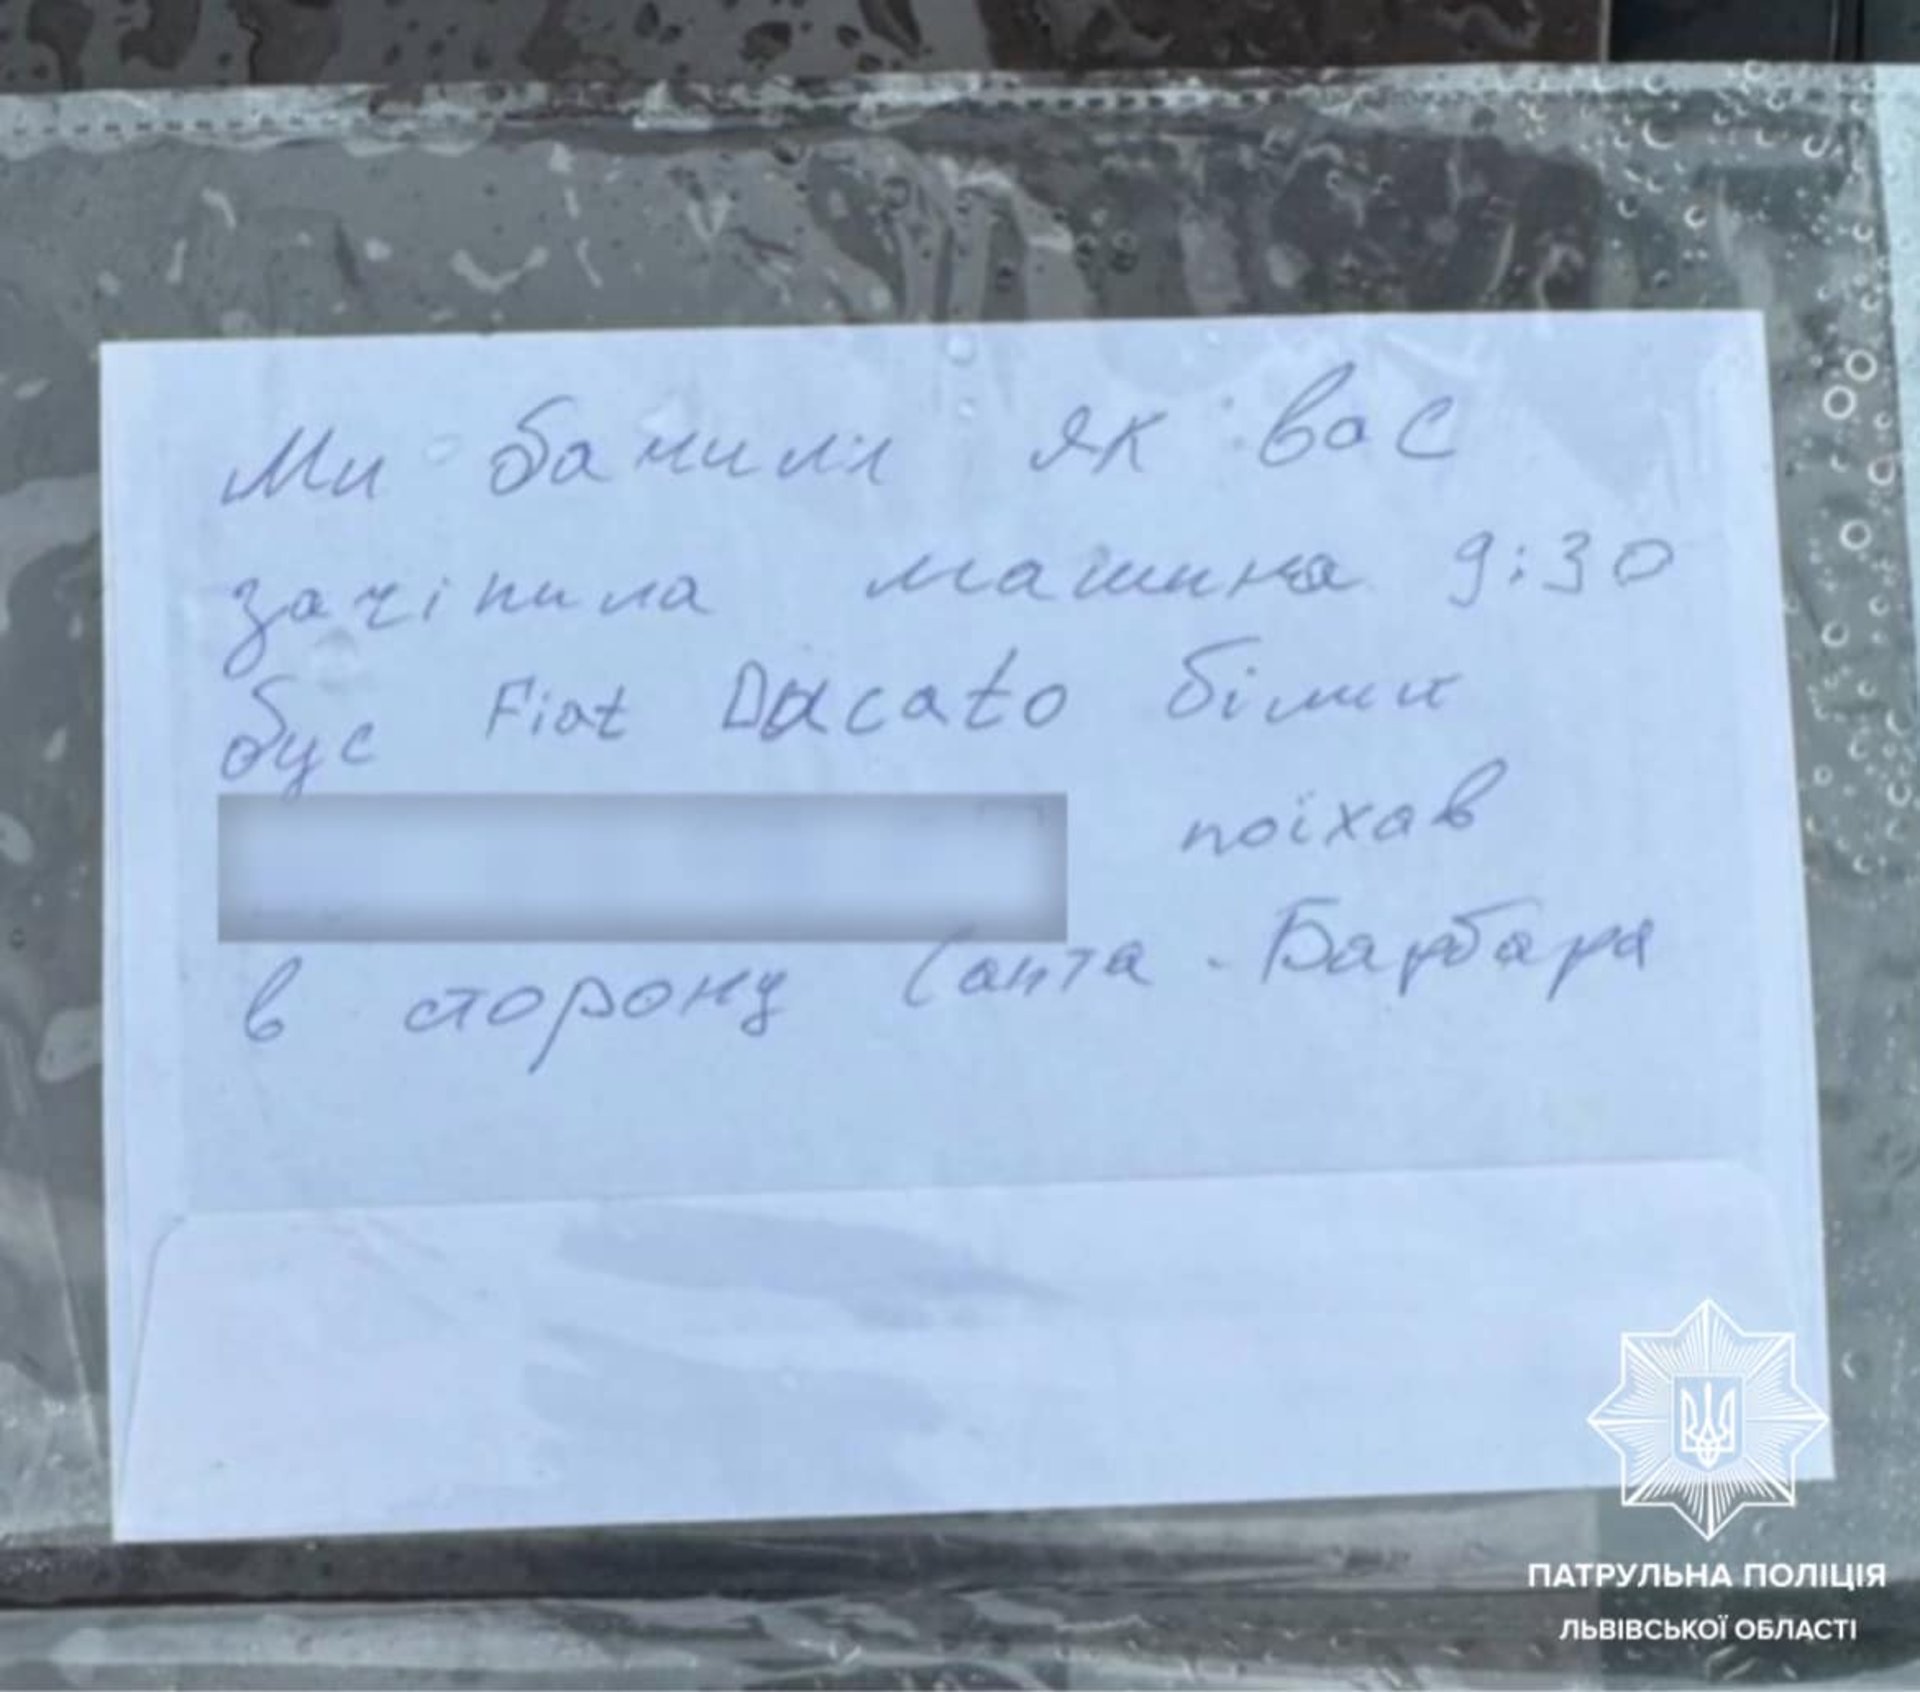 Ми бачили як вас
зачіпила машина 9:30
бус Fiat Ducato білий
поїхав
в сторону Санта-Барбара
ПАТРУЛЬНА ПОЛІЦІЯ
ЛЬВІВСЬКОЇ ОБЛАСТІ